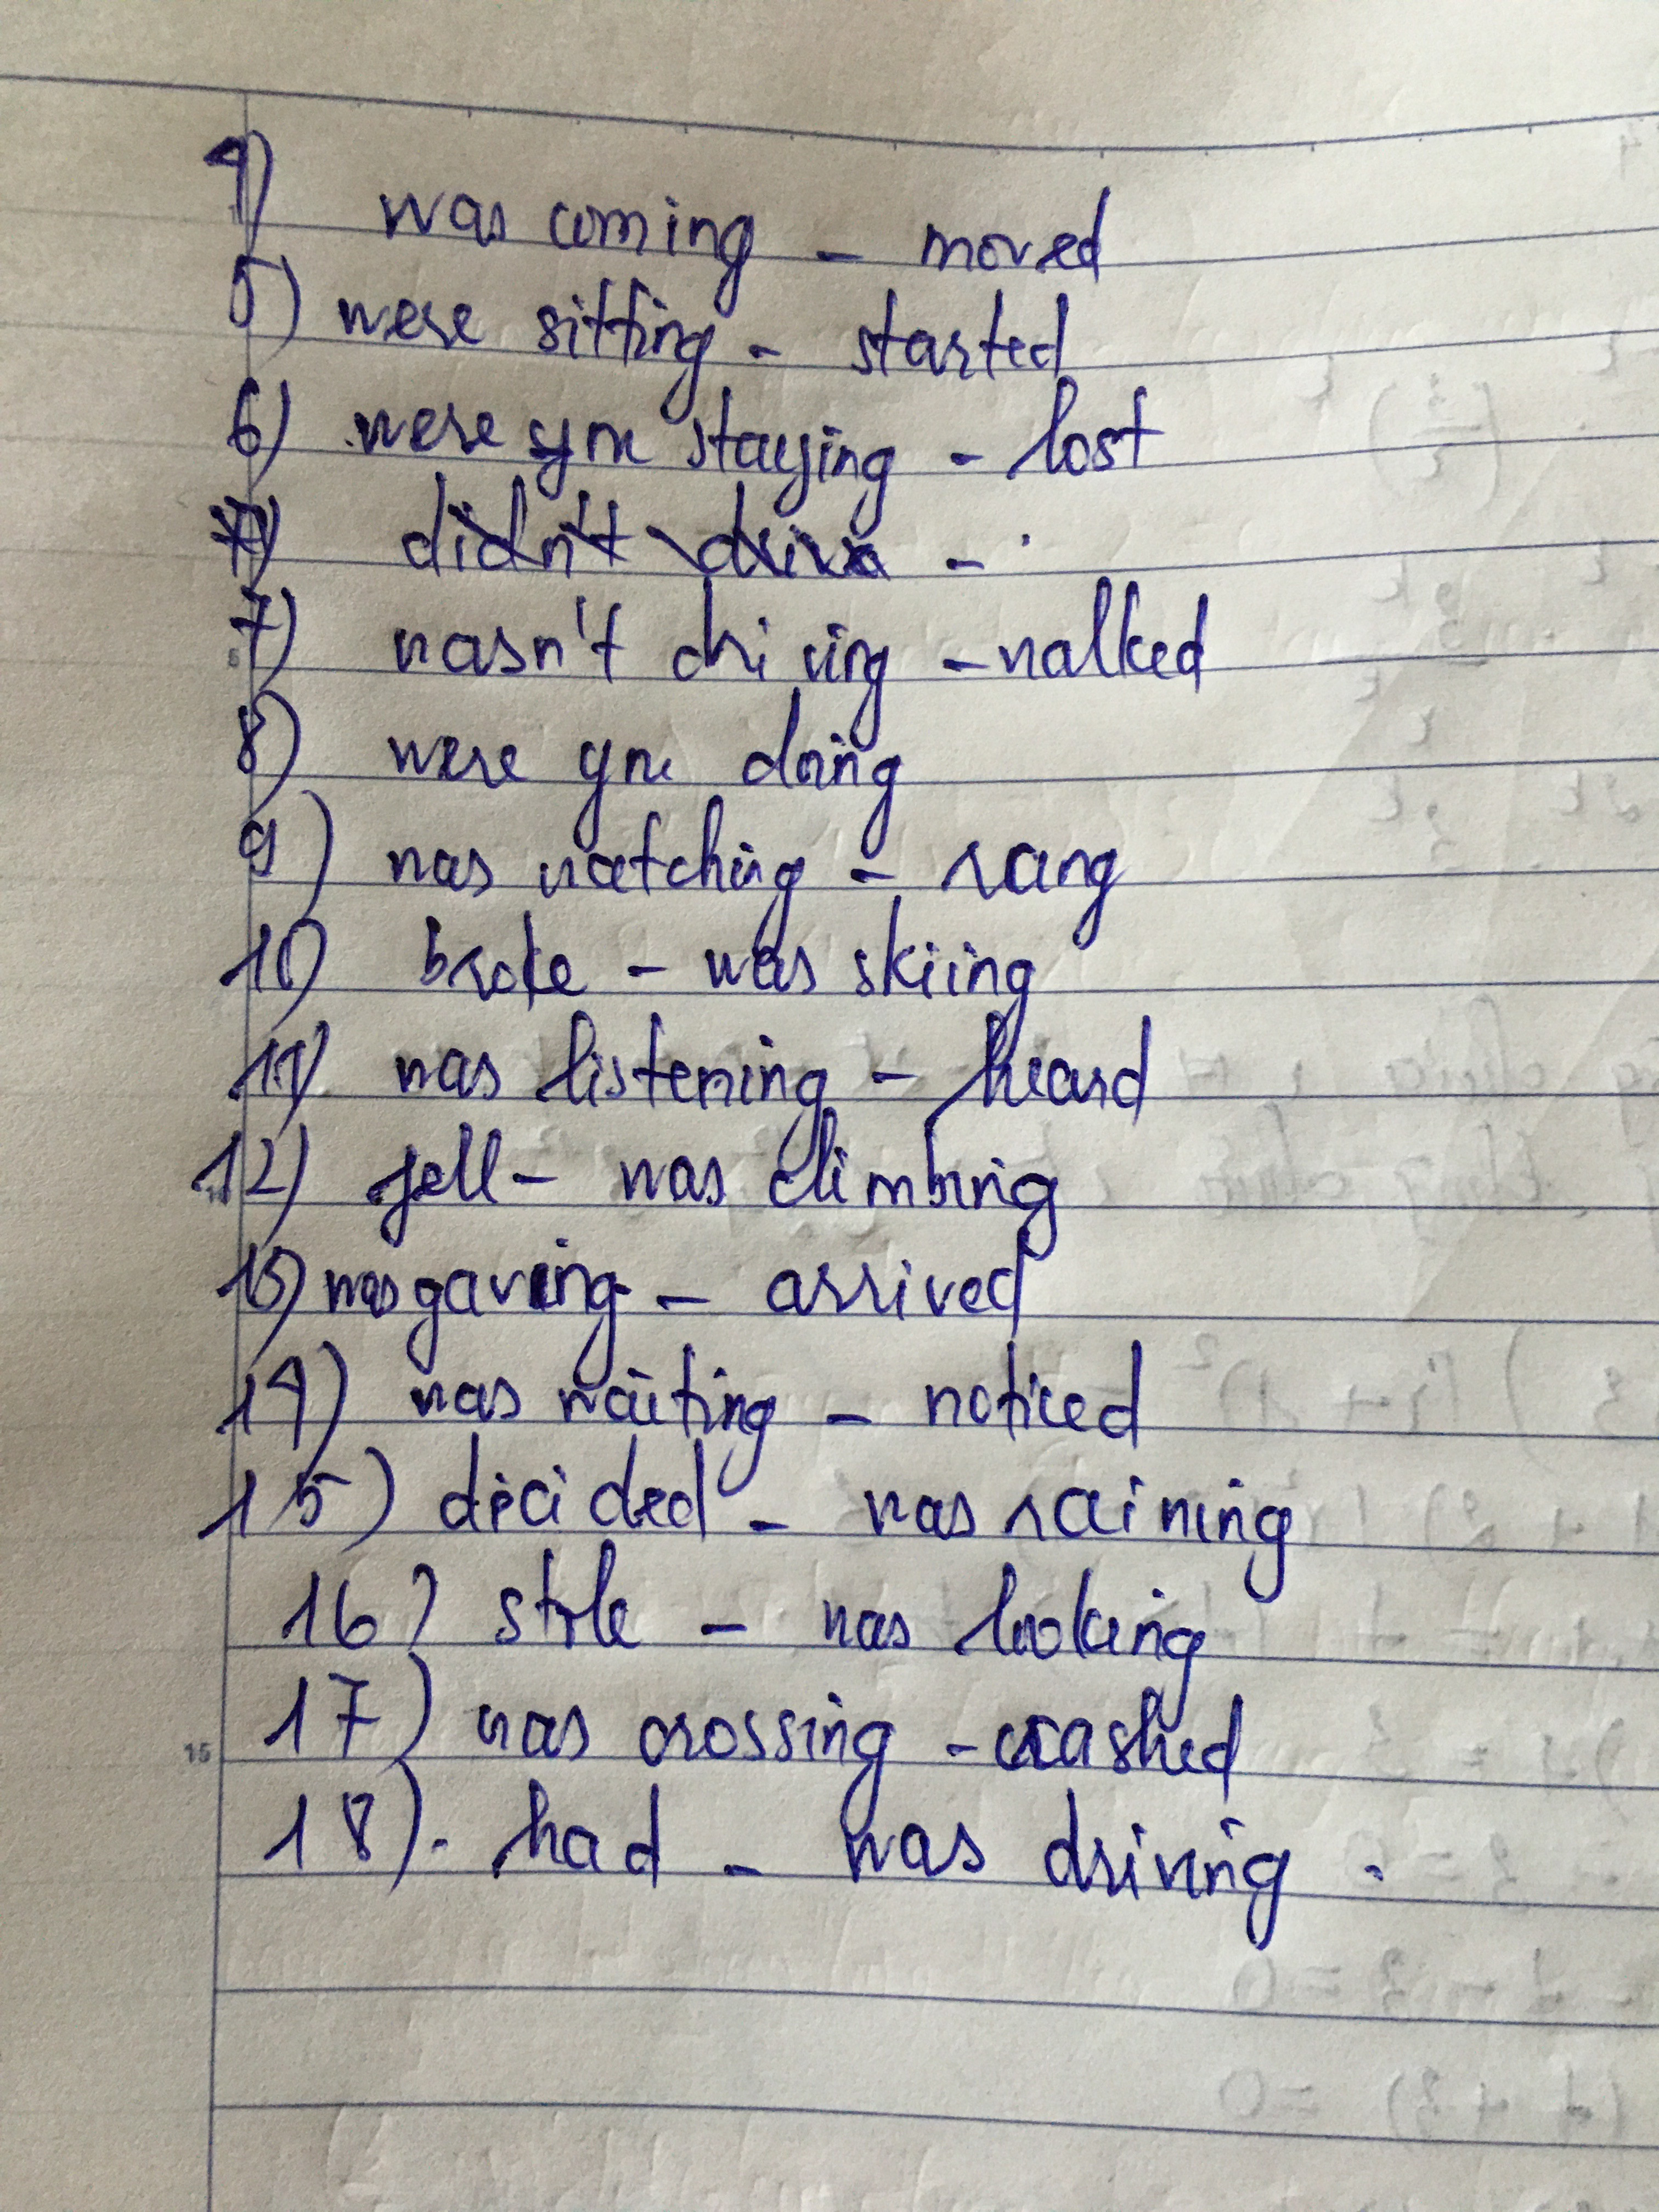 4) was coming - moved
5) were sitting - started
6) were you staying - lost
7) didn't drive -
7) wasn't driving - walked
8) were you doing
9) was watching - rang
10) broke - was skiing
11) was listening - heard
12) fell - was climbing
13) was gaving - arrived
14) was waiting - noticed
15) decided - was raining
16) stole - was looking
17) was crossing - crashed
18). had - was driving.
15